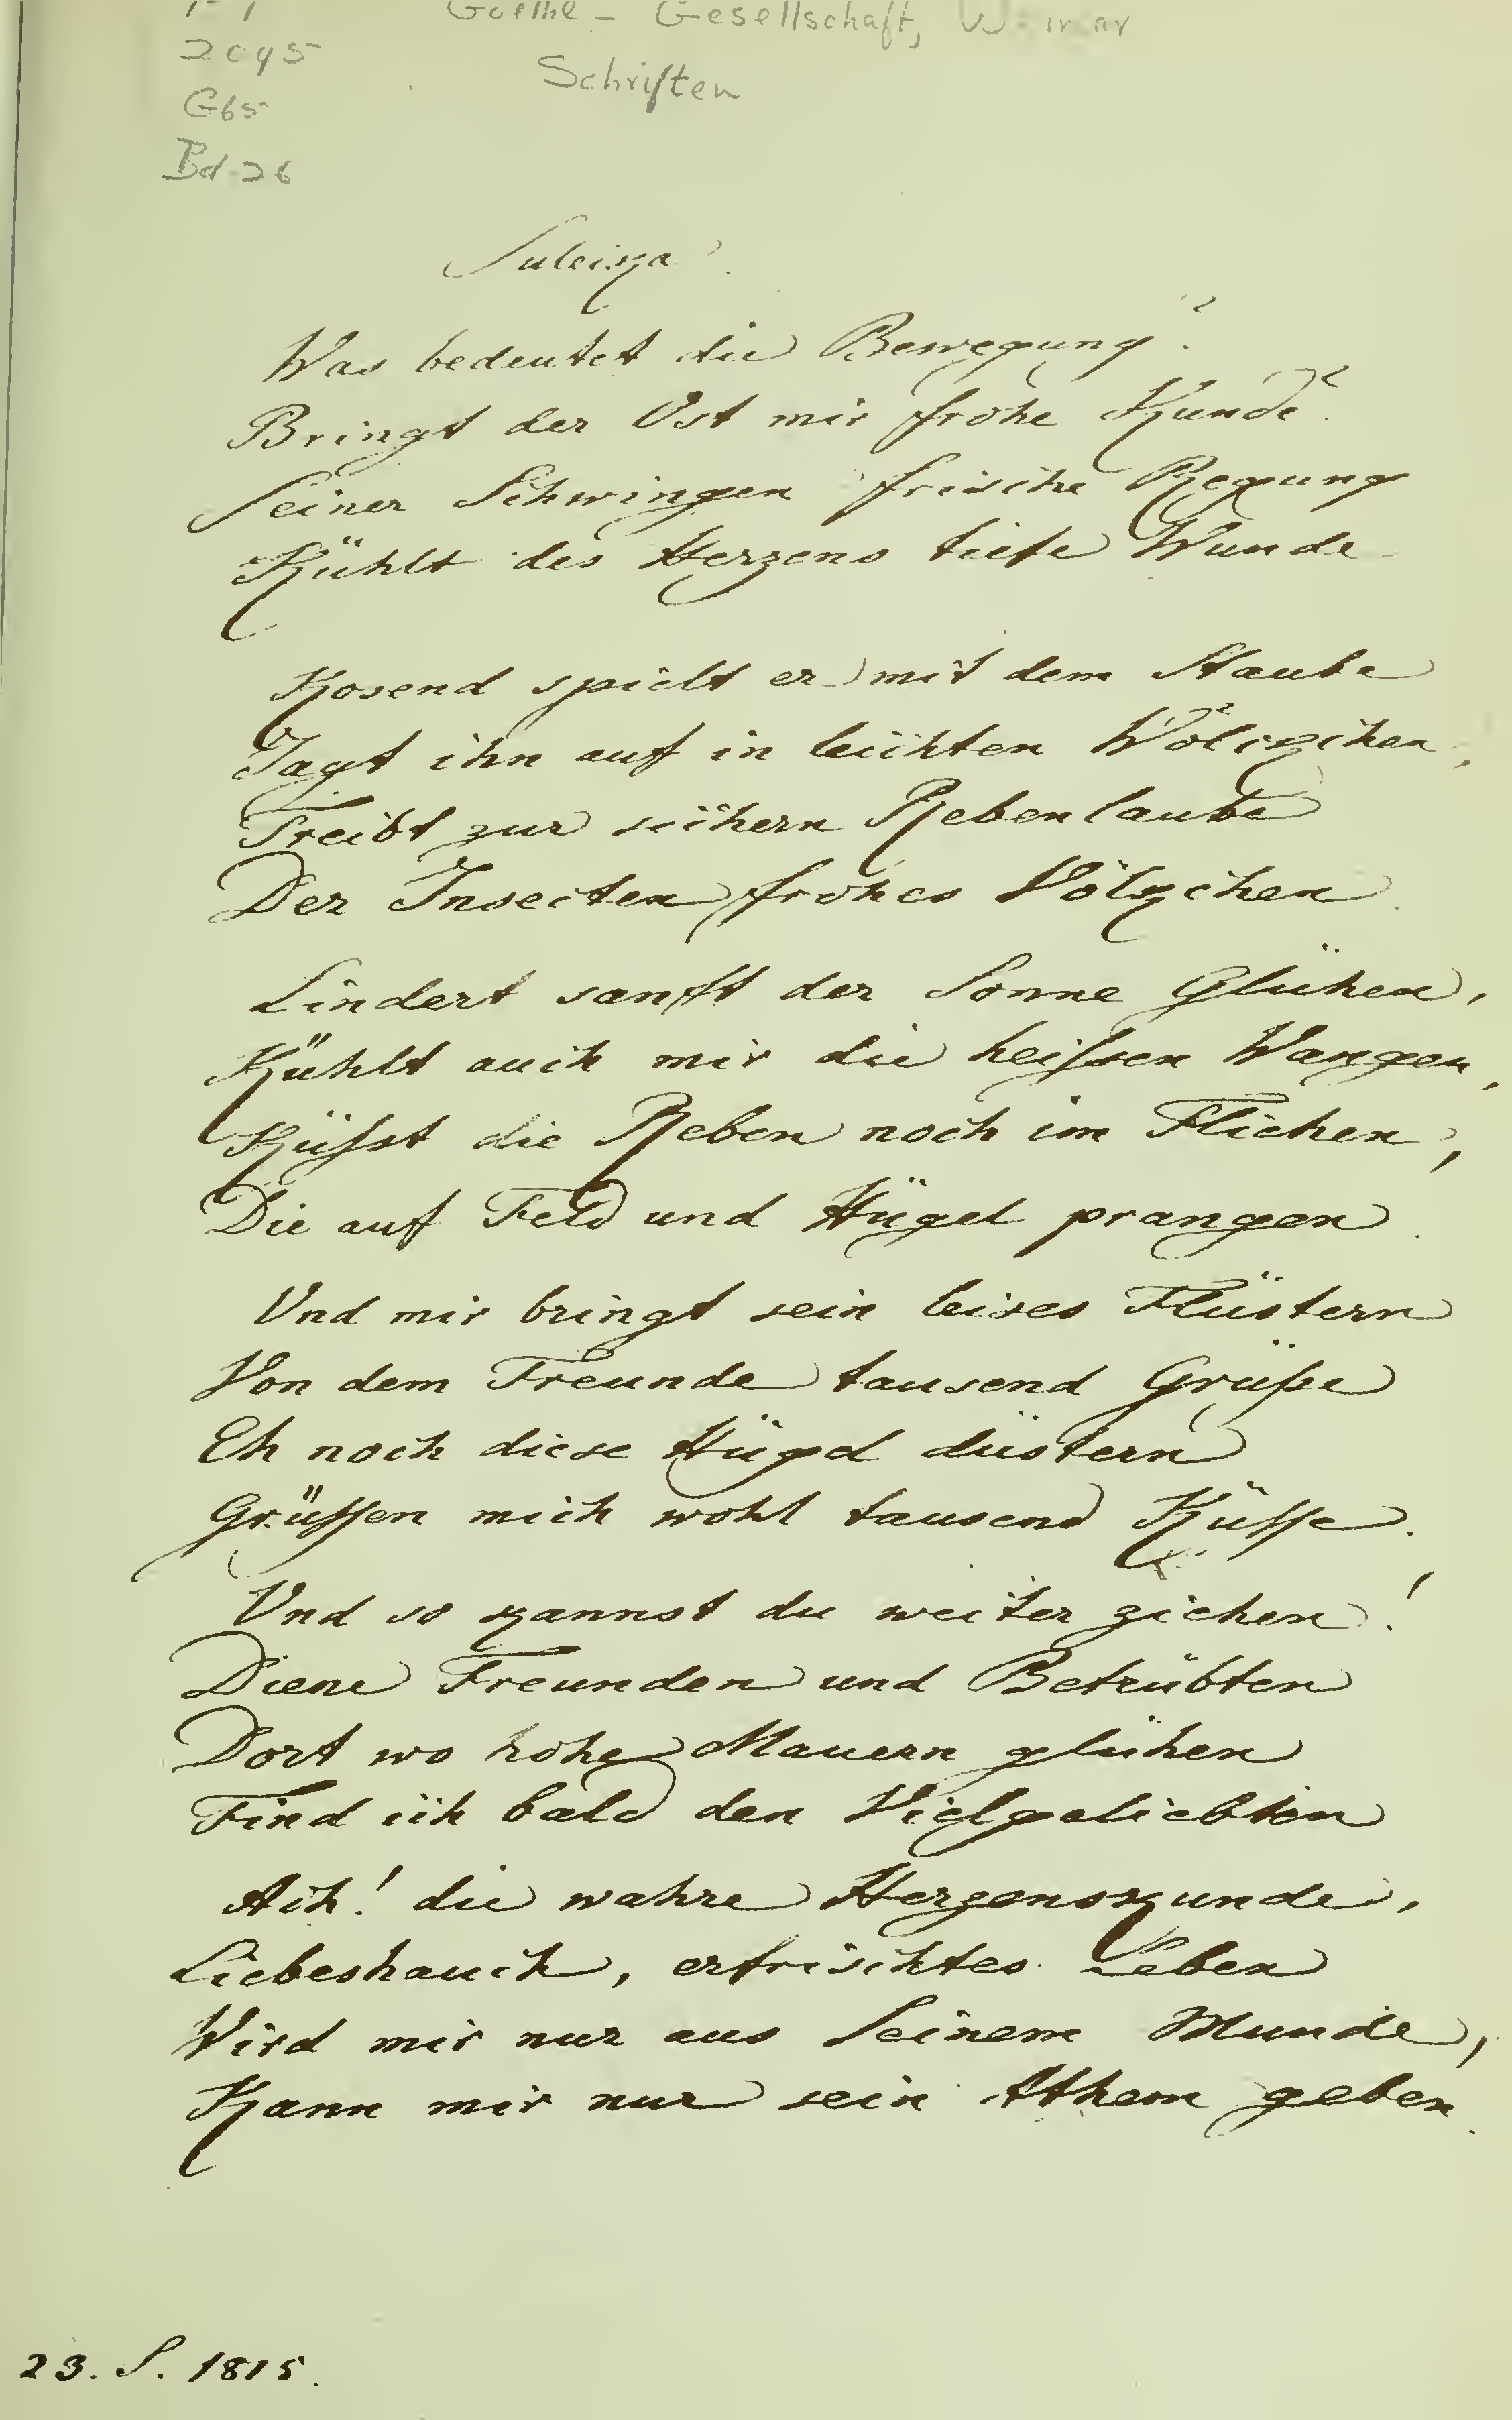 Goethe - Gesellschaft, Weimar
2045
Schriften
G65
Bd. 26
Suleika.
Was bedeutet die Bewegung?
Bringt der Ost mir frohe Kunde?
Seiner Schwingen frische Regung
Kühlt des Herzens tiefe Wunde.
Kosend spielt er mit dem Staube
Jagt ihn auf in leichten Wölckchen,
Treibt zur sichern Rebenlaube
Der Insecten frohes Völkchen.
Lindert sanft der Sonne Glühen,
Kühlt auch mir die heissen Wangen,
Küsst die Reben noch im Fliehen,
Die auf Feld und Hügel prangen.
Und mir bringt sein leises Flüstern
Von dem Freunde tausend Grüße
Eh noch diese Hügel düstern
Grüssen mich wohl tausend Küsse.
Und so kannst du weiter ziehen!
Diene Freunden und Betrübten
Dort wo hohe Mauern glühen
Find ich bald den Vielgeliebten
Ach! die wahre Herzenskunde,
Liebeshauch, erfrischtes Leben
Wird mir nur aus Seinem Munde,
Kann mir nur sein Athem geben.
23. S. 1815.